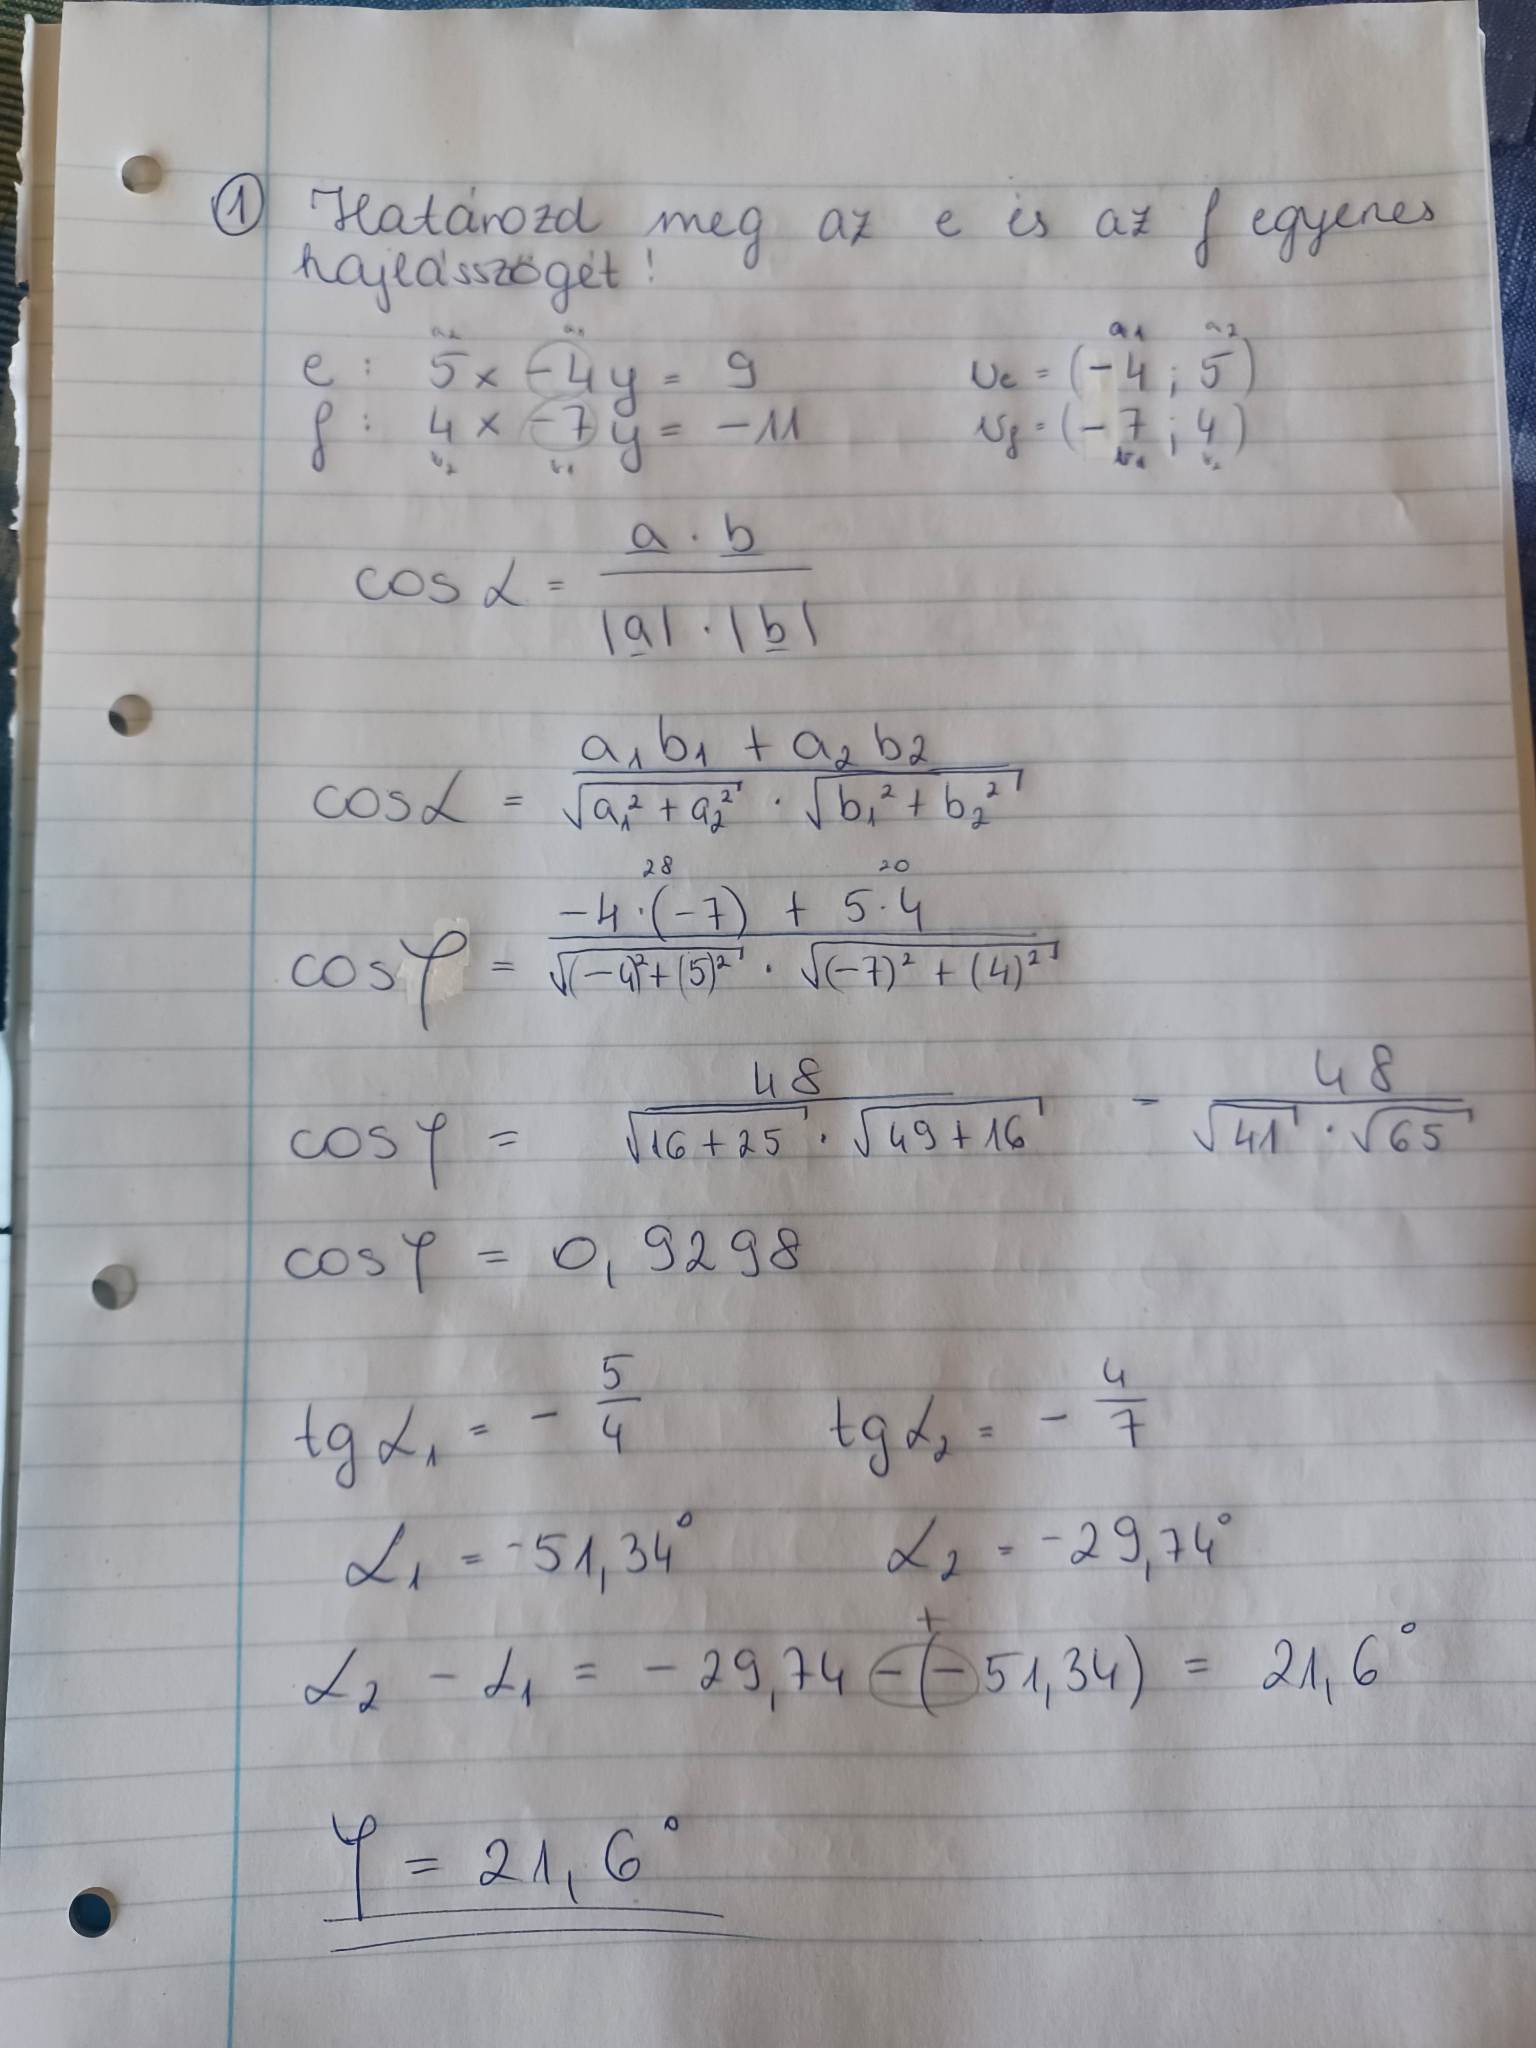 ① Határozd meg az e és az f egyenes
hajlásszögét!
a₂ a₁ a₁ a₂
e: 5x -4y = 9 ve = (-4; 5)
f: 4x -7y = -11 vf = (-7; 4)
b₂ b₁ b₁ b₂
cos α = a · b / |a| · |b|
cos α = a₁b₁ + a₂b₂ / √(a₁² + a₂²) · √(b₁² + b₂²)
28 20
cos φ = -4·(-7) + 5·4 / √((-4)² + (5)²) · √((-7)² + (4)²)
cos φ = 48 / √(16+25) · √(49+16) = 48 / √41 · √65
cos φ = 0,9298
tg α₁ = - 5/4 tg α₂ = - 4/7
α₁ = -51,34° α₂ = -29,74°
+
α₂ - α₁ = -29,74 -(-51,34) = 21,6°
φ = 21,6°